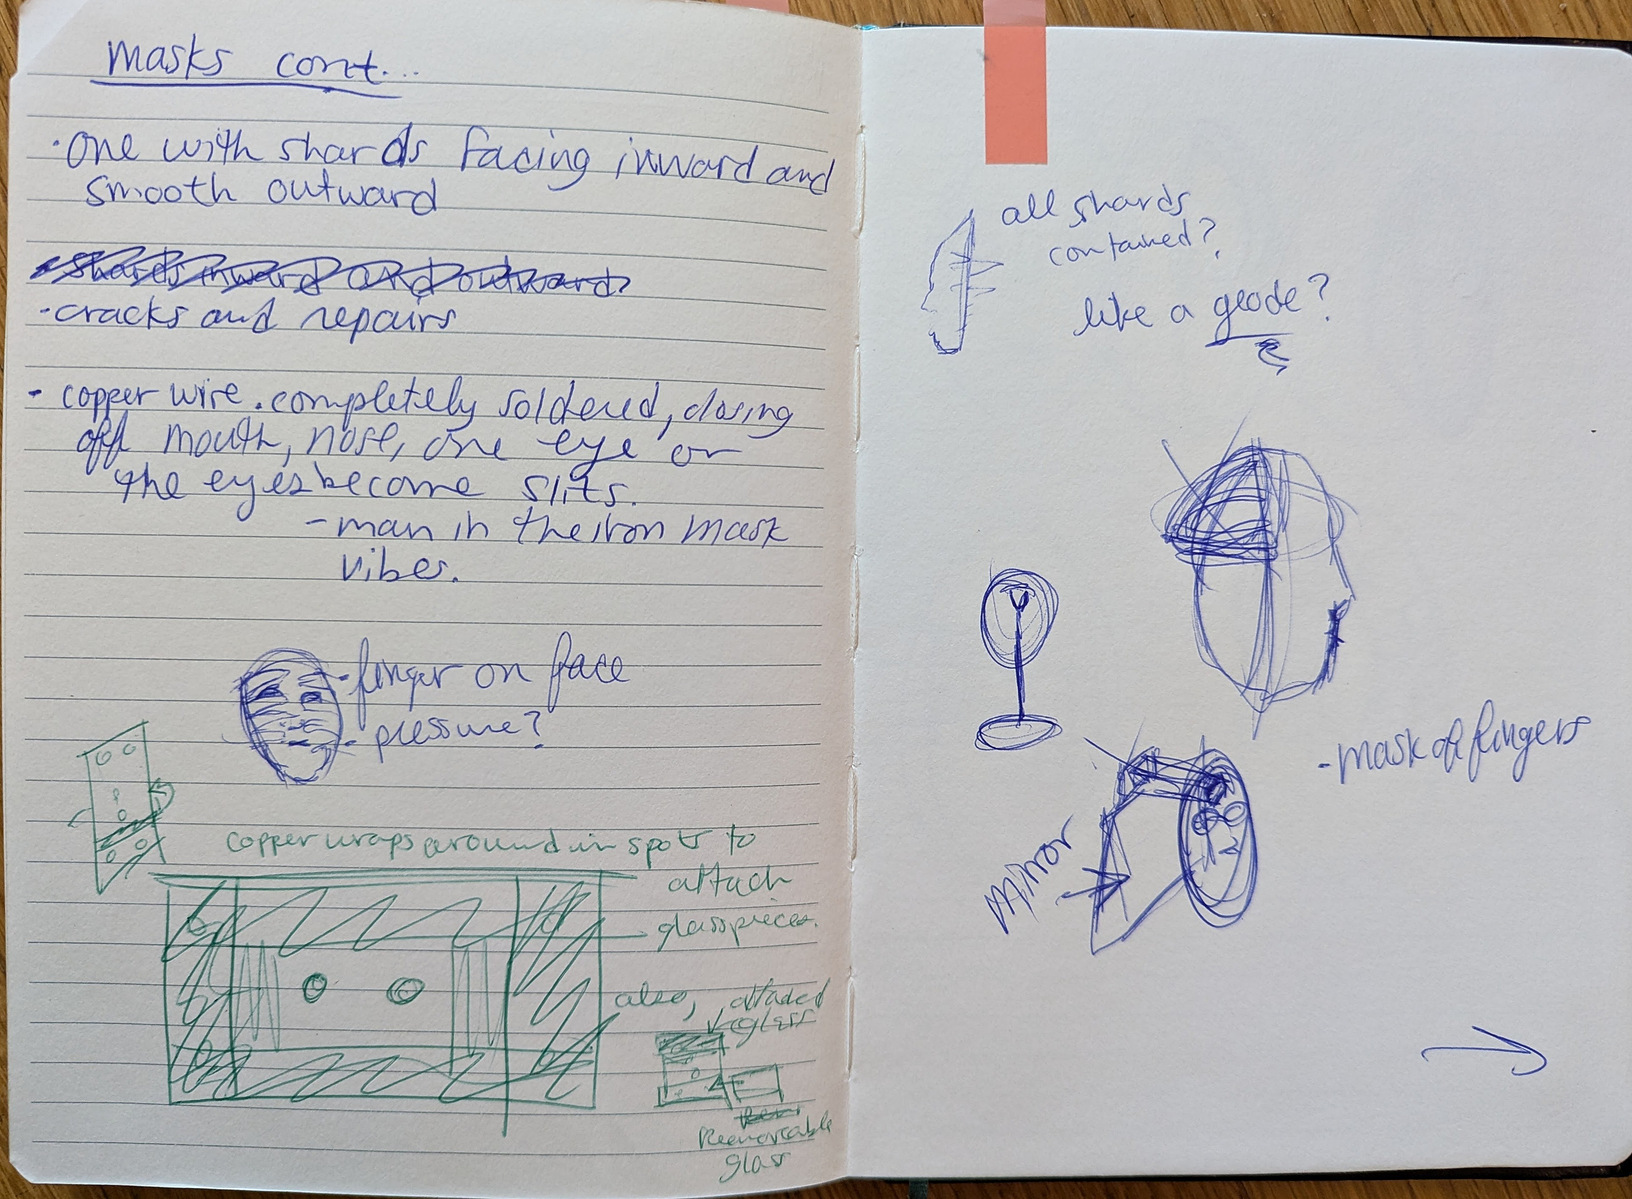 masks cont...
· One with shards facing inward and
smooth outward
shards inward and outward
- cracks and repairs
- copper wire. completely soldered, closing
off mouth, nose, one eye or
the eyes become slits.
- man in the iron mask
vibes.
- finger on face
- pressure?
copper wraps around in spots to
attach
glass pieces.
also, attached
glass
Removeable
glass
all shards
contained?
like a geode?
- mask of fingers
mirror